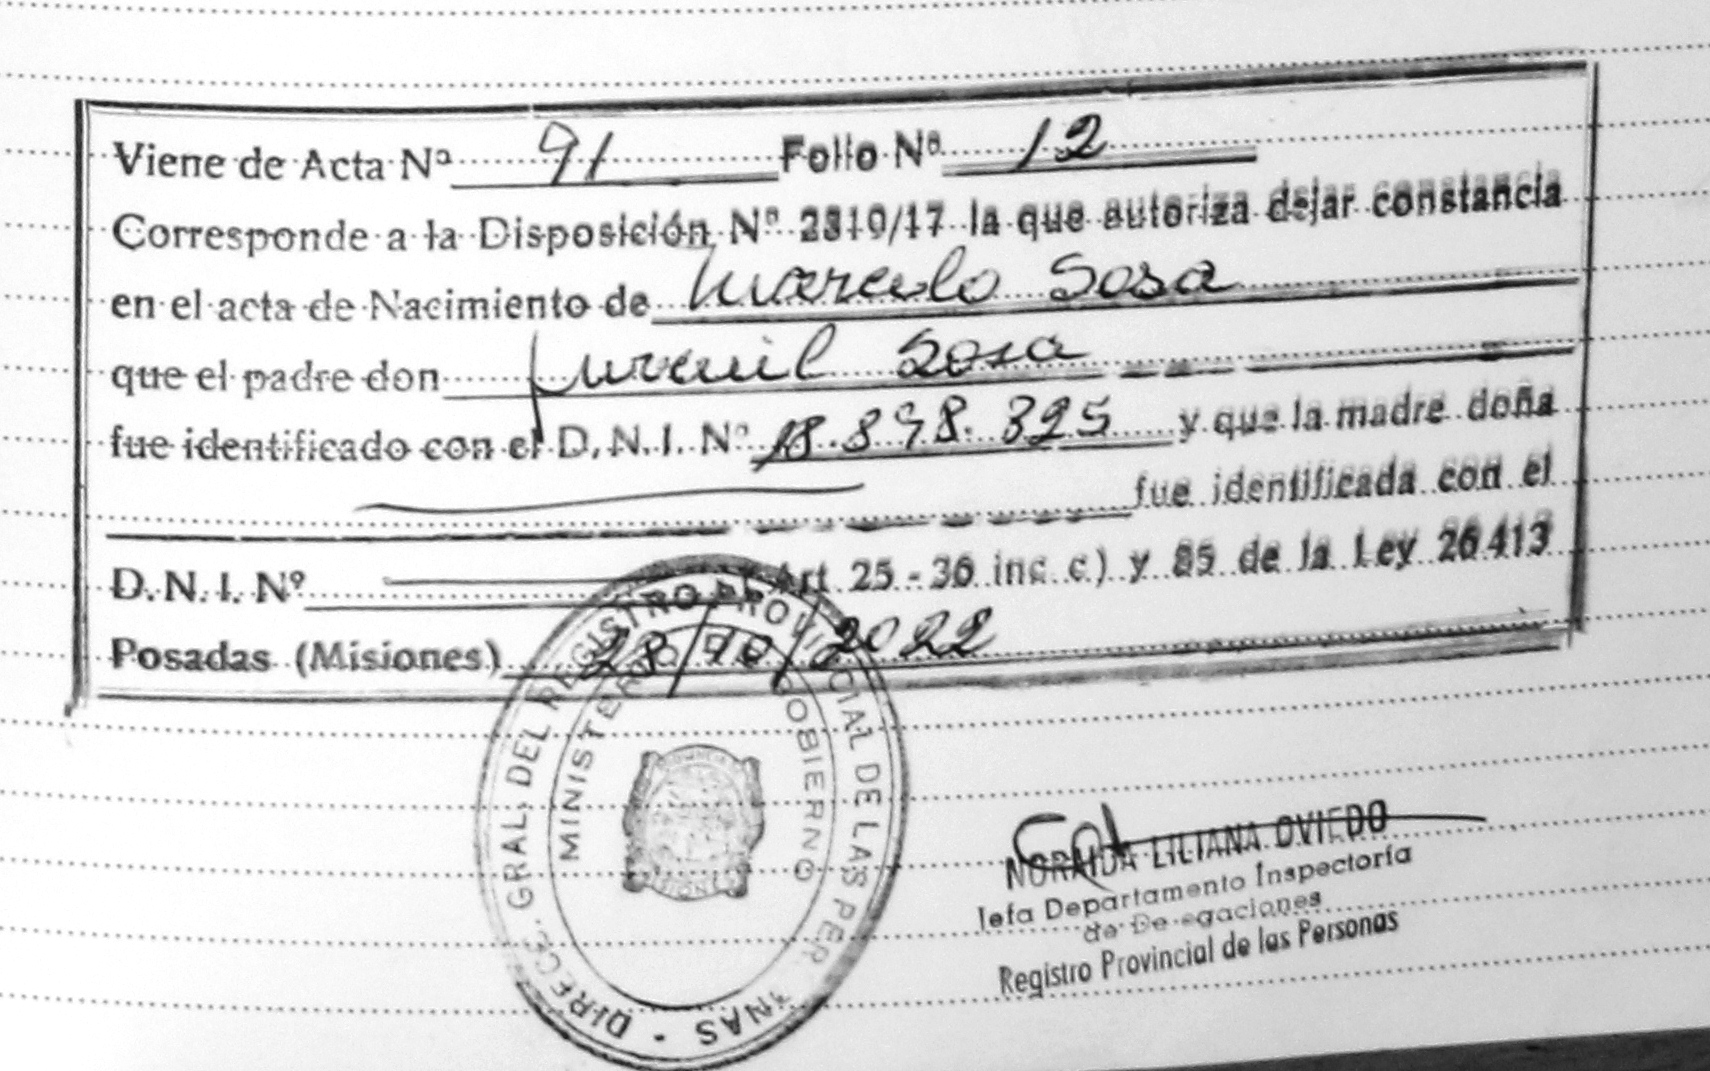 Viene de Acta Nº 91 Folio Nº 12
Corresponde a la Disposición Nº 2310/17 la que autoriza dejar constancia
en el acta de Nacimiento de Marcelo Sosa
que el padre don Juvenil Sosa
fue identificado con el D.N.I. Nº 18.898.325 y que la madre doña
fue identificada con el
D.N.I. Nº Art 25 - 36 inc. c) y 85 de la Ley 26413
Posadas (Misiones) 28/10/2022
DIRECC. GRAL. DEL REGISTRO PROVINCIAL DE LAS PERSONAS
MINISTERIO DE GOBIERNO
MISIONES
NORAIDA LILIANA OVIEDO
Jefa Departamento Inspectoría
de Delegaciones
Registro Provincial de las Personas